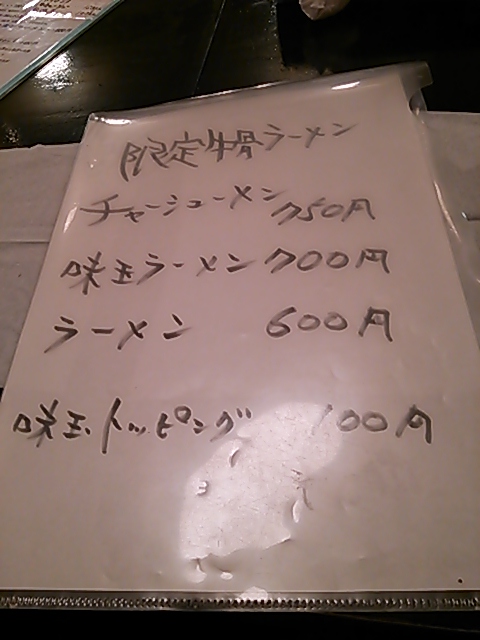 限定牛骨ラーメン
チャーシューメン 750円
味玉ラーメン 700円
ラーメン 600円
味玉トッピング 100円